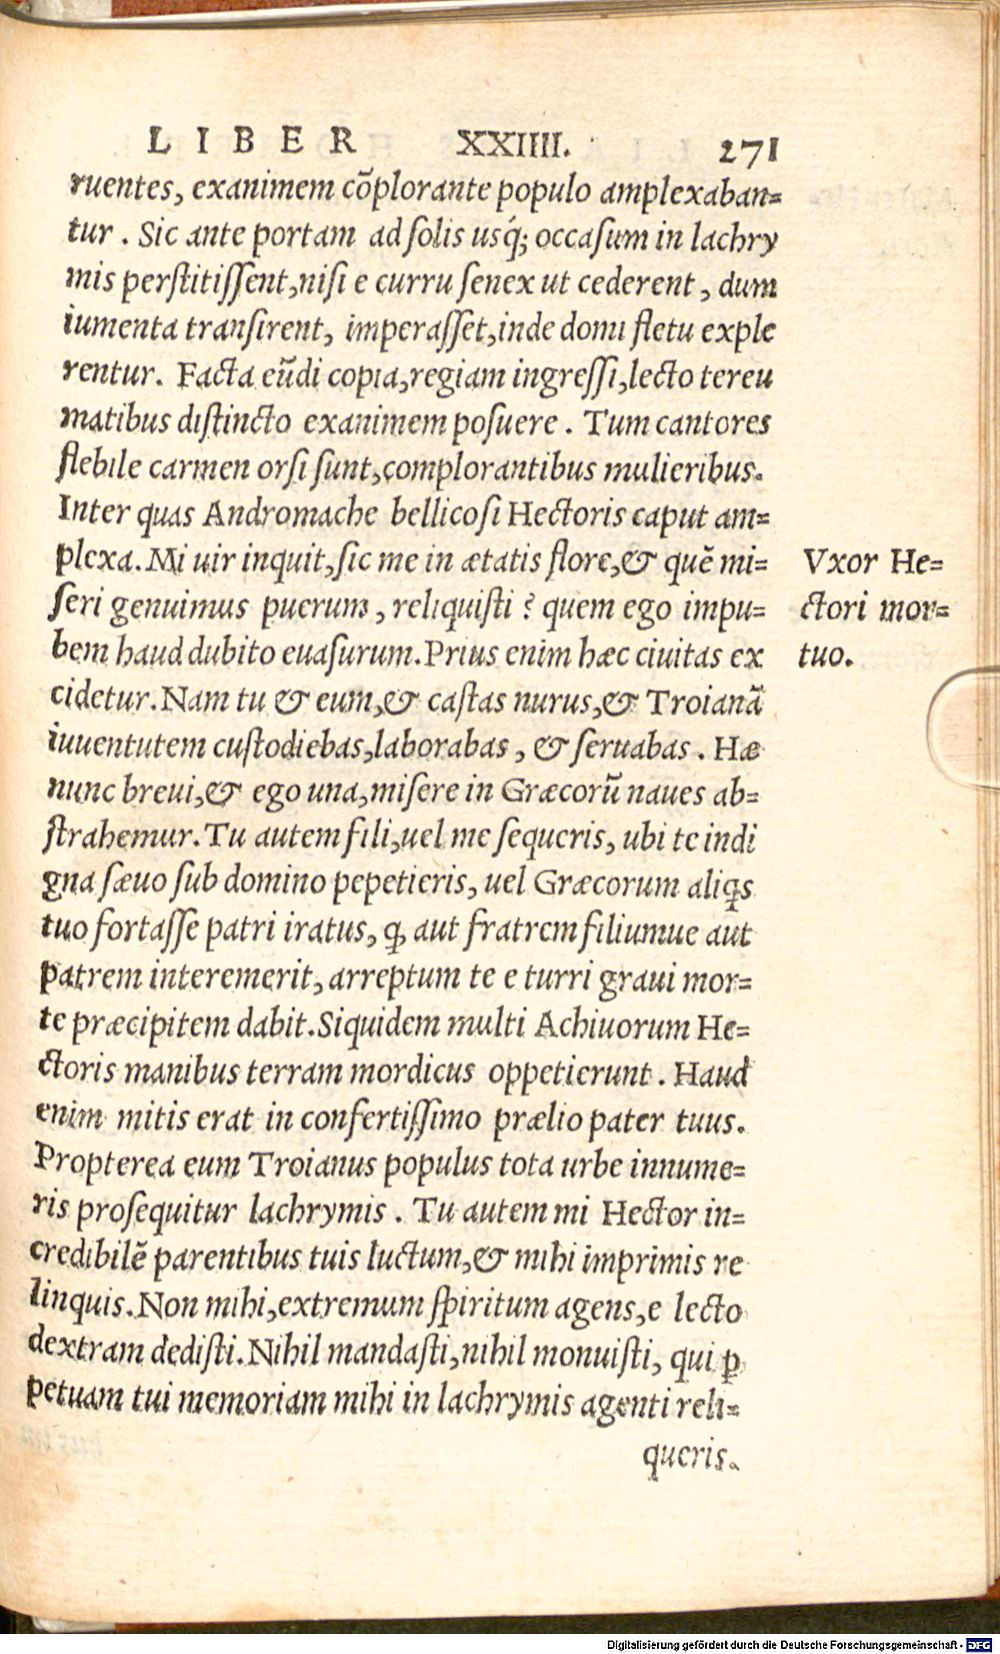 LIBER XXIIII. 271
ruentes, exanimem cõplorante populo amplexaban=
tur . Sic ante portam ad ſolis uſq́; occaſum in lachry
mis perſtitiſſent,niſi e curru ſenex ut cederent, dum
iumenta tranſirent, imperaſſet,inde domi fletu exple
rentur. Facta eũdi copia,regiam ingreſſi,lecto tereu
matibus diſtincto exanimem poſuere . Tum cantores
flebile carmen orſi ſunt,complorantibus mulieribus.
Inter quas Andromache bellicoſi Hectoris caput am=
plexa. Mi uir inquit,ſic me in ætatis flore,& quẽ mi=
ſeri genuimus puerum, reliquiſti ? quem ego impu=
bem haud dubito euaſurum.Prius enim hæc ciuitas ex
cidetur.Nam tu & eum,& caſtas nurus,& Troianã
iuuentutem cuſtodiebas,laborabas, & ſeruabas . Hæ
nunc breui,& ego una,miſere in Græcorũ naues ab=
ſtrahemur.Tu autem fili,uel me ſequeris, ubi te indi
gna ſæuo ſub domino pepetieris, uel Græcorum aliqs
tuo fortaſſe patri iratus, ꝙ aut fratrem filiumue aut
patrem interemerit, arreptum te e turri graui mor=
te præcipitem dabit.Siquidem multi Achiuorum He=
ctoris manibus terram mordicus oppetierunt . Haud
enim mitis erat in confertiſſimo prælio pater tuus.
Propterea eum Troianus populus tota urbe innume=
ris proſequitur lachrymis . Tu autem mi Hector in=
credibilẽ parentibus tuis luctum,& mihi imprimis re
linquis.Non mihi,extremum ſpiritum agens,e lecto
dextram dediſti.Nihil mandaſti,nihil monuiſti, qui ꝑ
petuam tui memoriam mihi in lachrymis agenti reli=
queris.
Vxor He=
ctori mor=
tuo.
Digitalisierung gefördert durch die Deutsche Forschungsgemeinschaft - DFG